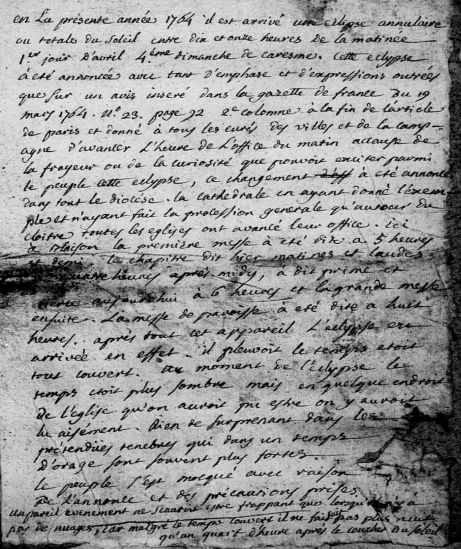 en La présente année 1764 il est arrivé une eclipse annulaire
ou totale du Soleil entre dix et onze heures de la matinée
1.er jour D'avril 4.eme dimanche de caresme. cette eclypse
a été annoncée avec tant d'emphase et d'expressions outrées
que sur un avis inseré dans la gazette de france du 19
mars 1764. n.º 23. page 92 2.e colomne à la fin de l'article
de paris et donné à tous les curés des villes et de la camp-
agne d'avanter L'heure de L'office du matin accause de
la frayeur ou de la curiosité que pouvoit exciter parmi
le peuple cette eclypse, ce changement a été annoncé
dans tout le diocèse. la cathedrale en ayant donné l'exem-
ple et n'ayant fait la procession generale qu'autour du
cloitre toutes les eglises ont avancé leur office. ici
à la première messe à été dite à 5 heures
et demi. le chapitre dit hier matines et laudes
quatre heures après midy, à dit prime et
tierce aujourd'hui à 6 heures et la grande messe
ensuite. La messe de paroisse à été dite a huit
heures. après tout cet appareil L'eclypse est
arrivée en effet. il pleuvoit le temps etoit
tout couvert. au moment de l'eclypse le
temps etoit plus sombre mais en quelque endroit
de l'église qu'on auroit pu estre on y auroit
lu aisément. Rien de surprenant dans les
prétendües tenebres qui dans un temps
d'orage sont souvent plus fortes.
le peuple s'est mocqué avec raison
De L'annonce et des précautions prises.
un pareil evenement ne scauroit estre frappant que lorsqu'il n'y a
pas de nuages, car malgré le temps couvert il ne faisoit pas plus nuit
qu'un quart d'heure après le coucher Du Soleil